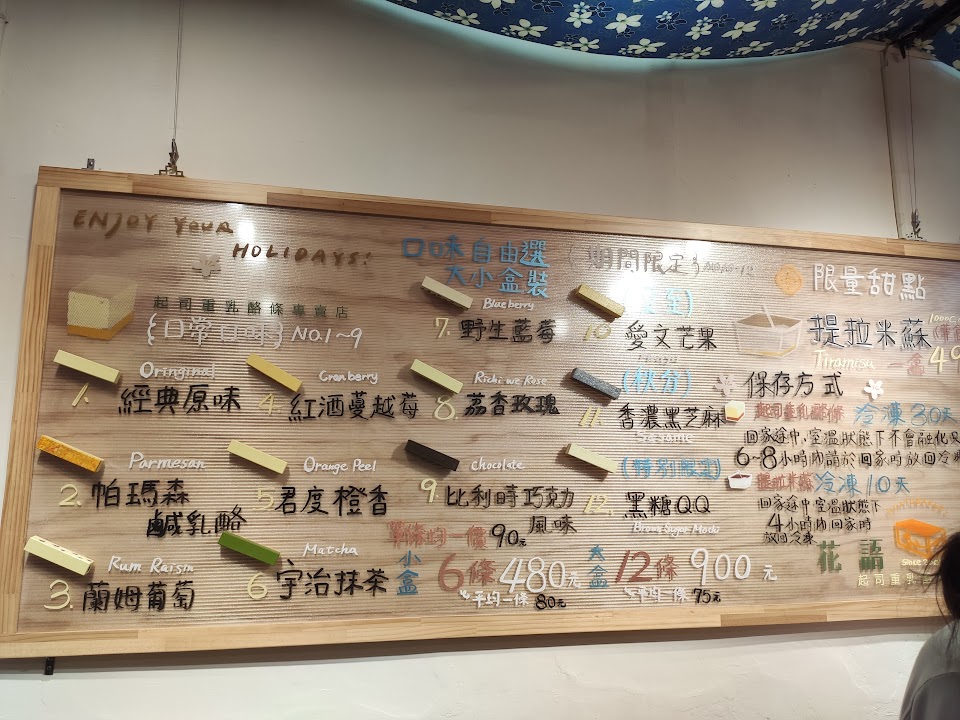 ENJOY YOUR
HOLIDAYS!
起司重乳酪條專賣店
{日常口味} NO.1~9
口味自由選
大小盒裝
Oringinal
1. 經典原味
Parmesan
2. 帕瑪森
鹹乳酪
Rum Raisin
3. 蘭姆葡萄
Cranberry
4. 紅酒蔓越莓
Orange Peel
5. 君度橙香
Matcha
6. 宇治抹茶
Blueberry
7. 野生藍莓
8. 荔香玫瑰
Chocolate
9. 比利時巧克力
風味
單條均一價 90元
小盒 6條 480元
平均一條 80元
大盒 12條 900元
平均一條 75元
{期間限定} NO.10~12
10. 愛文芒果
(秋分)
11. 香濃黑芝麻
Sesame
(特別限定)
12. 黑糖QQ
限量甜點
提拉米蘇
Tiramisu
保存方式
起司重乳酪條 冷凍30天
回家途中,室溫狀態下不會融化
6-8小時內請於回家時放回冷凍
提拉米蘇 冷凍10天
回家途中室溫狀態下
4小時內回家時
放回冷凍
花語
起司重乳